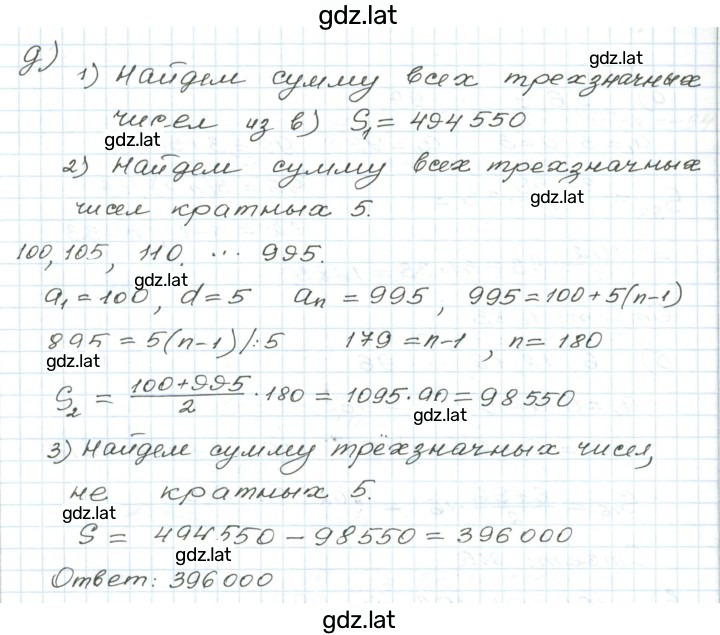 gdz.lat
д)
gdz.lat
1) Найдем сумму всех трехзначных
чисел из в) S₁ = 494 550
gdz.lat
2) Найдем сумму всех трехзначных
gdz.lat
чисел кратных 5.
100, 105, 110. ... 995.
gdz.lat
a₁ = 100, d = 5 aₙ = 995, 995 = 100 + 5(n-1)
895 = 5(n-1) /:5 179 = n-1, n = 180
gdz.lat
S₂ = (100+995)/2 · 180 = 1095 · 90 = 98 550
gdz.lat
3) Найдем сумму трёхзначных чисел,
не кратных 5.
gdz.lat
S = 494 550 - 98 550 = 396 000
gdz.lat
Ответ: 396 000
gdz.lat